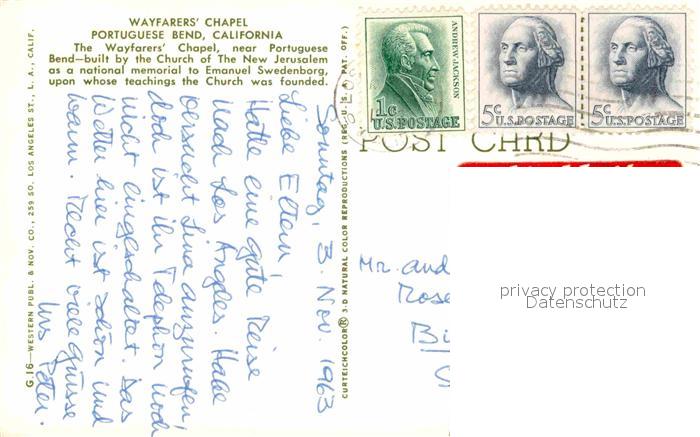 WAYFARERS' CHAPEL
PORTUGUESE BEND, CALIFORNIA
The Wayfarers' Chapel, near Portuguese
Bend—built by the Church of The New Jerusalem
as a national memorial to Emanuel Swedenborg,
upon whose teachings the Church was founded.
G.16—WESTERN PUBL. & NOV. CO., 259 SO. LOS ANGELES ST., L. A., CALIF.
CURTEICHCOLOR® 3-D NATURAL COLOR REPRODUCTIONS (REG. U. S. A. PAT. OFF.)
POST CARD
ANDREW JACKSON
1c
U.S. POSTAGE
5c U.S. POSTAGE
5c U.S. POSTAGE
Sonntag, 3. Nov. 1963
Liebe Eltern,
Hatte eine gute Reise
nach Los Angles. Habe
versucht Lina anzurufen!
doch ist ihr Telephon noch
nicht eingeschaltet. Das
Wetter hier ist schön und
warm. Recht viele Grüsse
Urs Peter.
Mr. and
Rose
Bi
privacy protection
Datenschutz